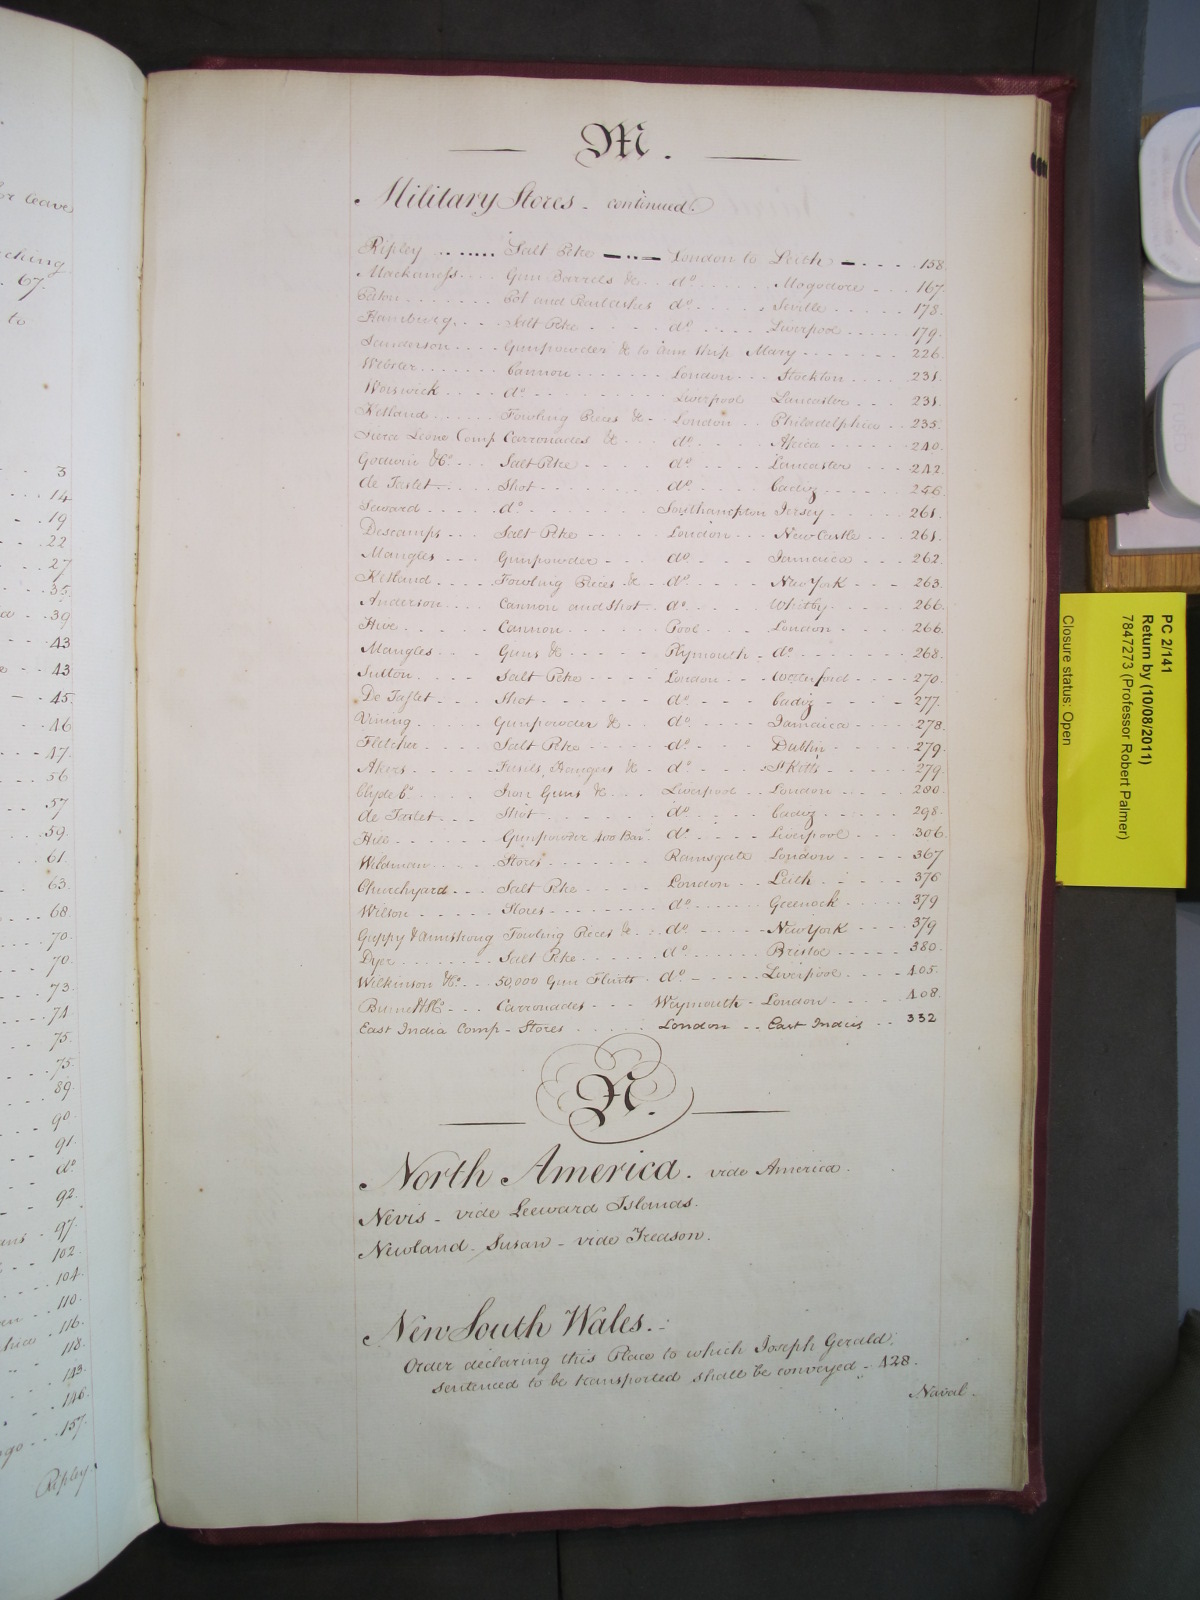 or leave
ching
67.
to
3
14
19
22
27
35
39
43
43
45
46
47
56
57
59
61
63
68
70
70
73
74
75
75
89
90
91
do
92
97
102
104
110
116
118
143
146
157
Ripley
M.
Military Stores - continued.
Ripley Salt Petre London to Leith 158
Mackaness Gun Barrels &c do Mogodore 167
Pot and Pearl ashes do Seville 178
Hamburg Salt Petre do Liverpool 179
Sanderson Gunpowder &c to arm Ship Mary 226
Webster Cannon London Stockton 231
Worswick do Liverpool Lancaster 231
Ketland Fowling Pieces &c London Philadelphia 235
Siera Leone Comp Carronades &c do Africa 240
Godwin &Co Salt Petre do Lancaster 242
de Tastet Shot do Cadiz 256
Seward do Southampton Jersey 261
Descamps Salt Petre London New Castle 261
Mangles Gunpowder do Jamaica 262
Ketland Fowling Pieces &c do New York 263
Anderson Cannon and Shot do Whitby 266
Hive Cannon Pool London 266
Mangles Guns &c Plymouth do 268
Sutton Salt Petre London Waterford 270
De Tastet Shot do Cadiz 277
Vining Gunpowder &c do Jamaica 278
Fletcher Salt Petre do Dublin 279
Akers Fusils, Hangers &c do St Kitts 279
Clyde Co Iron Guns &c Liverpool London 280
de Tastet Shot do Cadiz 298
Hill Gunpowder 400 Bar. do Liverpool 306
Wildman Stores Ramsgate London 367
Churchyard Salt Petre London Leith 376
Wilson Stores do Greenock 379
Guppy & Armstrong Fowling Pieces &c do New York 379
Dyer Salt Petre do Bristol 380
Wilkinson &Co 50,000 Gun Flints do Liverpool 405
Burnett &Co Carronades Weymouth London 408
East India Comp - Stores London East Indies 332
N.
North America. vide America.
Nevis - vide Leeward Islands.
Newland Susan - vide Treason.
New South Wales.
Order declaring this Place to which Joseph Gerald,
sentenced to be transported shall be conveyed - 428.
Naval.
PC 2/141
Return by (10/08/2011)
7847273 (Professor Robert Palmer)
Closure status: Open